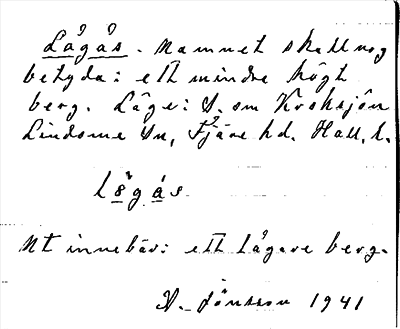 Lågås. Namnet skall nog
betyda: ett mindre högt
berg. Läge: S. om Kroksjön
Lindome Sn, Fjäre hd. Hall. l.
lågås
Nt innebär: ett lågare berg.
A. Jönsson 1941